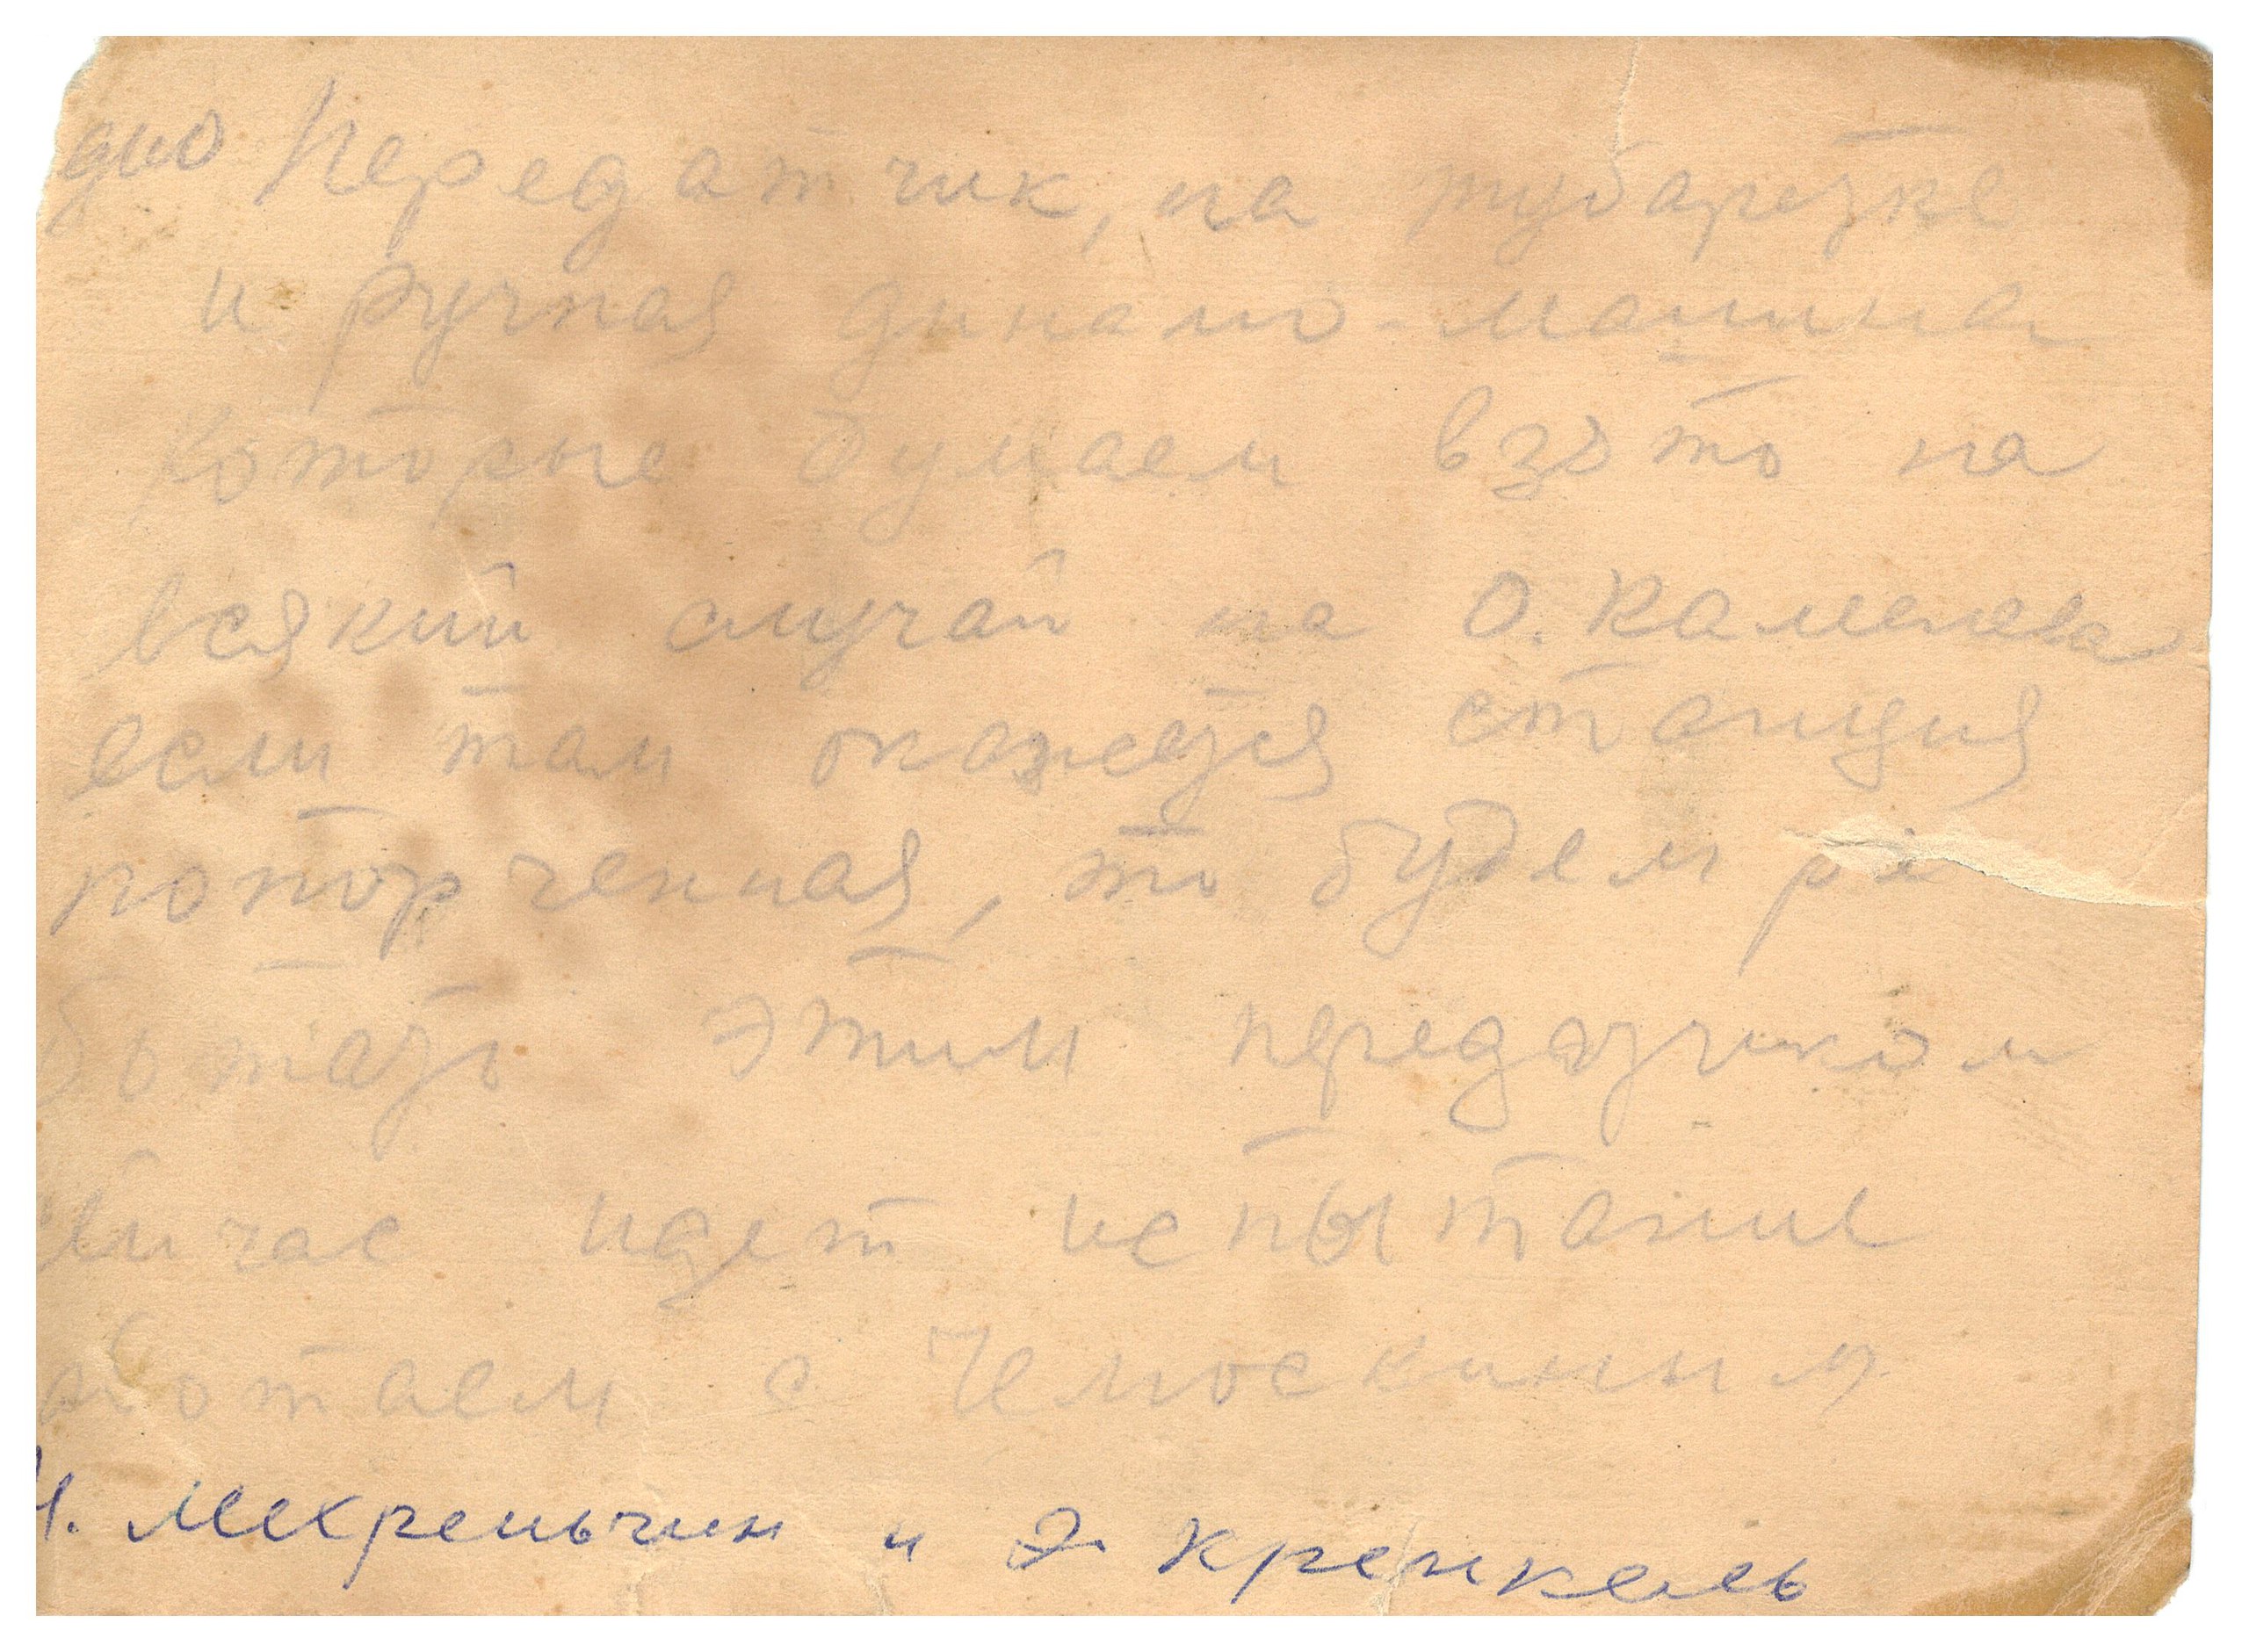 дио Передатчик, на тубаретке
и ручная динамо-машина
которые думаем взять на
всякий случай на О. Каменева
если там окажется станция
попорченная, то будем ра
ботать этим передатчиком
ейчас идет испытание
аботаем с Челюскиным
Н. Мехреньгин и Э Кренкель